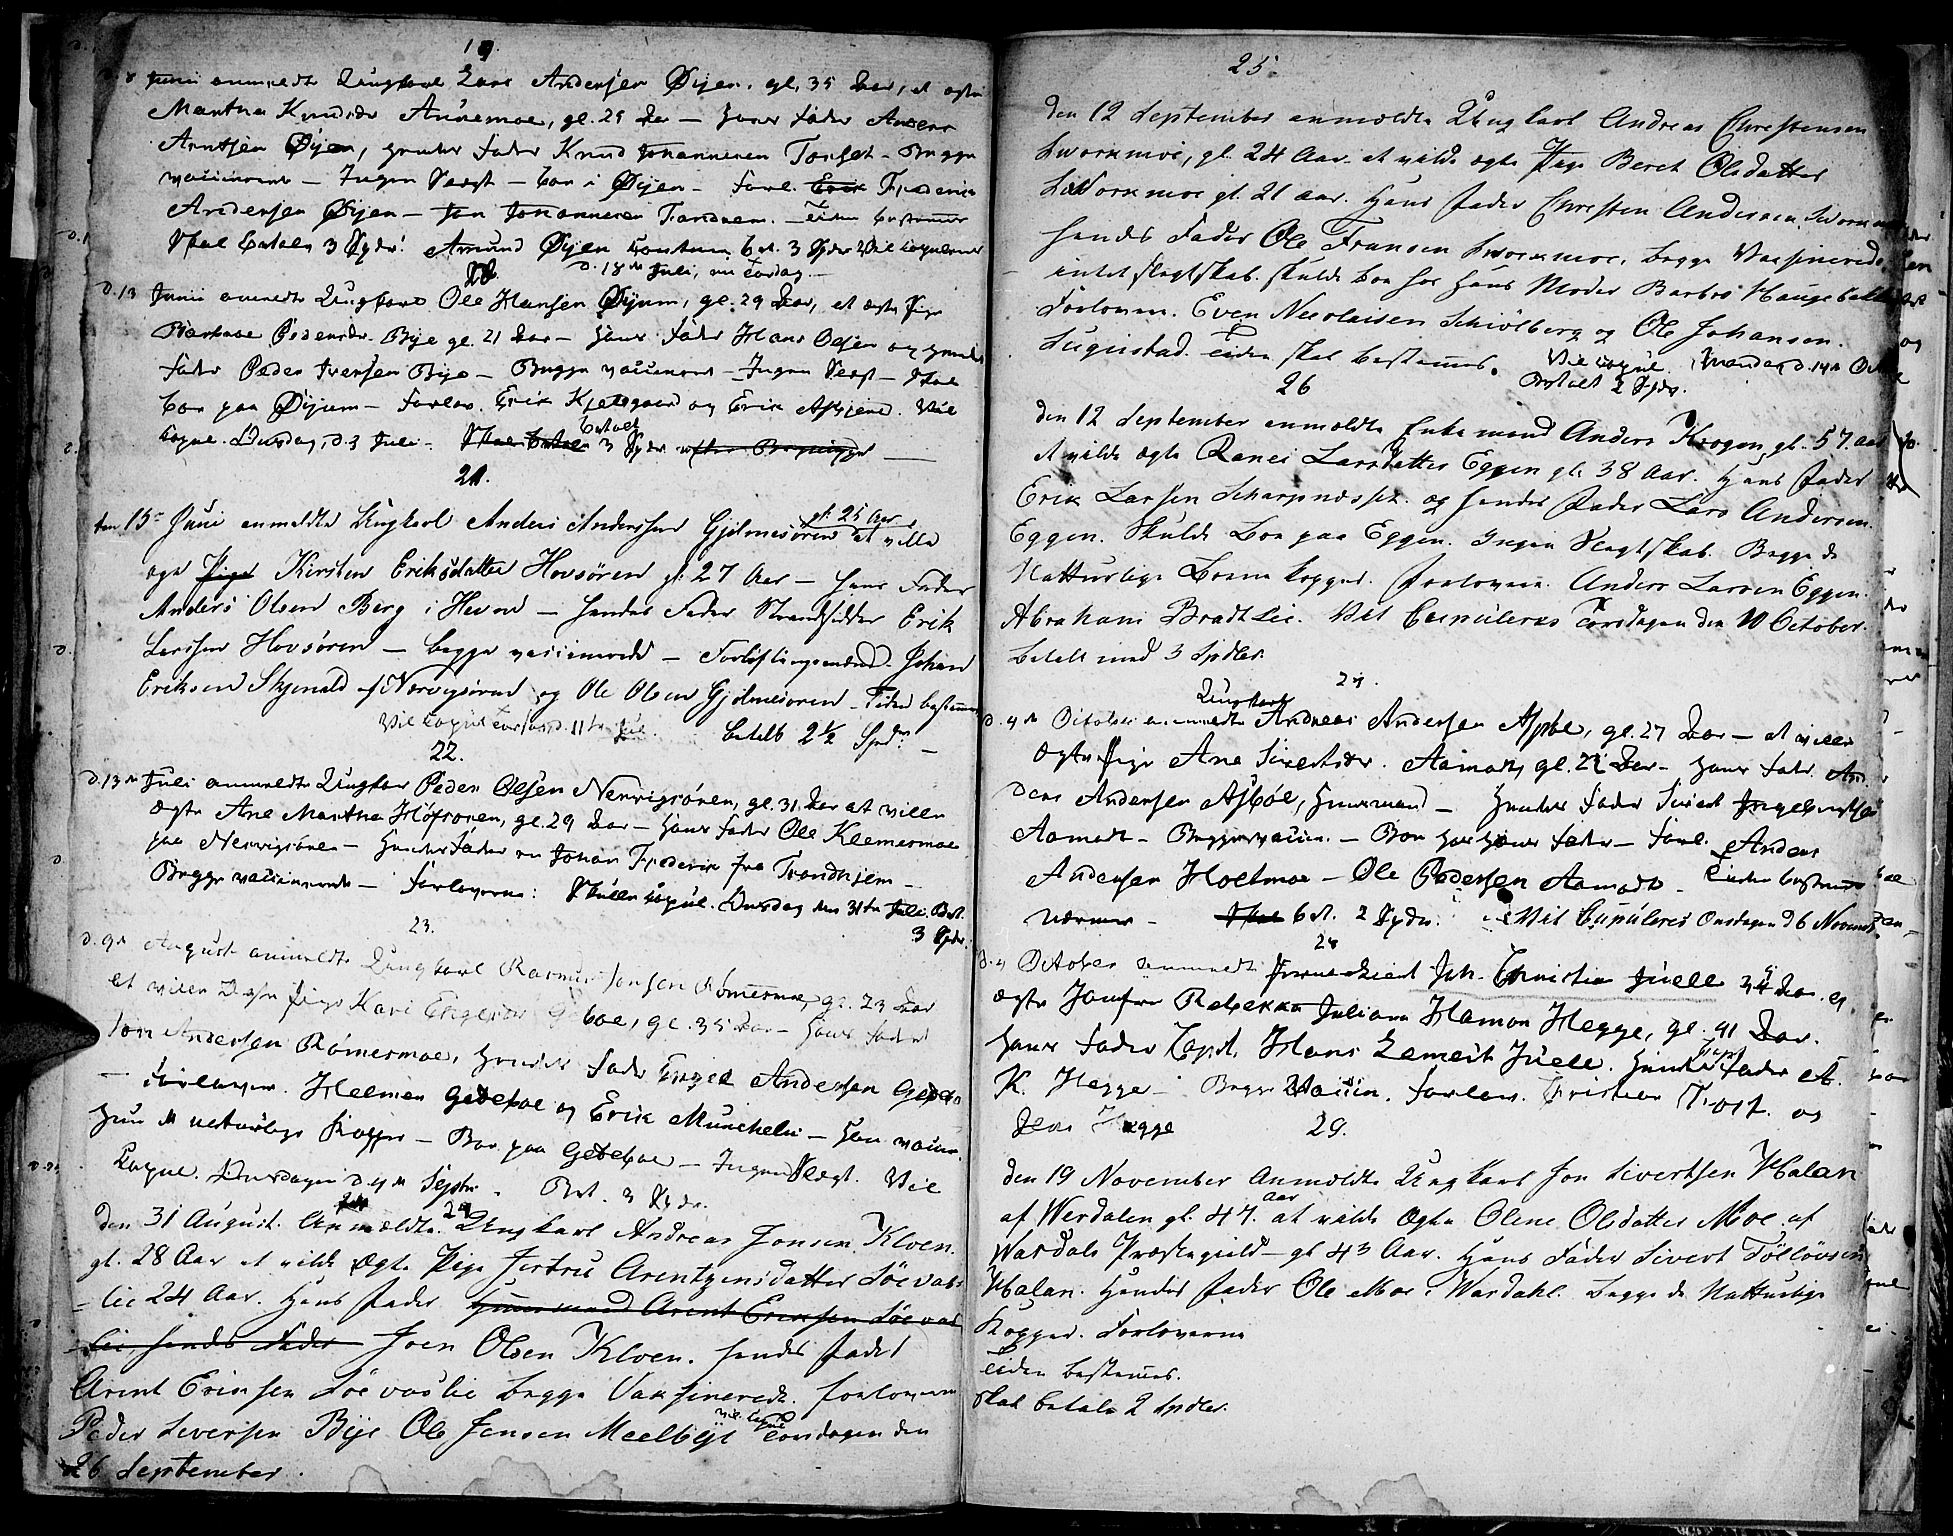 19.
Junii anmeldte Ungkarl Lars Andersen Øijen, gl. 35 Aar, at ægte
Martha Knudsdr Aunemoe, gl. 25 Aar — Hans Fader Anders
Arntsen Øijen, hendes Fader Knud Johannesen Torset — Begge
vaccinerede — Ingen Slægt — boe i Øijen — Forl. Erik Frederik
Andersen Øijen — Jon Johannesen Trondnem. — Tiden bestemmes
Skal betale 3 Spdr. Amund Øijen bet. 3 Spdr Vil copuleres
d. 18de Juli, en Torsdag —
20
d. 13 Junii anmeldte Ungkarl Ole Hansen Øijum, gl. 29 Aar, at ægte Pige
Pedersdr. Bye gl. 21 Aar — Hans Fader Hans Olsen og hendes
Fader Peder Iversen Bye — Begge vaccinerede — Ingen Slægt — skal
boe paa Øijum — Forlov. Erik Kjelsgaard og Erik Asbjend. Vil
copul. Onsdag, d. 3 Juli. Skal betale betalt 3 Spdr efter
21.
den 15de Juni anmeldte Ungkarl Anders Anderssen Gjelmesören gl. 25 Aar at ville
ægte Pige Kirsten Eriksdatter Hovsören gl. 27 Aar — Hans Fader
Anders Olsen Berg i Hevne — Hendes Fader Strandsidder Erik
Larssen Hovsören — begge vaccinerede — Forlöftningsmænd Johan
Eriksen Skjenald af Nervigsören og Ole Olsen Gjelmesören — Tiden bestemmes
Vil copul Torsdag d. 11te Jul. betalt 2½ Spdr. —
22.
d. 13de Juli anmeldte Ungkar Peder Olsen Nervigsören, gl. 31 Aar at ville
ægte Ane Martha Höfsören, gl. 29 Aar — Hans Fader Ole Klemesmoe
paa Nervigsören — Hendes Fader en Johan Frederik fra Trondhjem —
Begge vaccinerede — Forloverne: Skulle copul. Onsdag den 31te Juli. Bet.
3 Spdr.
23.
d. 9de August anmeldte Ungkarl Rasmus Jonsen Römesmoe, gl. 23 Aar
at ville ægte Pige Kari Engelsdr Gjeboe, gl. 35 Aar — Hans Fader
Jon Andersen Römesmoe, hendes Fader Engel Andersen
— Forlovere. Helmer Gedeboe og Erik Munchelie — Han vaccin.
Hun de naturlige Kopper — Boe paa Gedeboe — Ingen Slægt. Vil
Copul. Onsdagen d. 4de Septbr. Bet. 3 Spdr.
24
den 31 August. Anmældte Ungkarl Andreas Jonsen Kloen.
gl. 28 Aar at vilde Ægte Pige Jertru Arentzensdatter Söevas-
lie 24 Aar. Hans Fader Huusmand Arent Eriksen Söevas
lie, hendes Fader Joen Olsen Kloen. hendes Fader
Arent Eriksen Söevaslie begge Vaksinerede. forloverne
Peder Iversen Bye Ole Jensen Meelbye vil copul Torsdagen den
26 September.
25.
den 12 September anmældte Ungkarl Andreas Christensen
Sworkmoe, gl. 24 Aar at vilde ægte Pige Beret Olsdatter
Sworkmoe gl. 21 aar. Hans Fader Christen Andersen Sworkmoe
hendes Fader Ole Fransen Sworkmoe, begge Vacsinerede,
intet slegtskab. skulde boe hos hans Moder Barbro Haugebakken
Forlovere. Even Nicolaisen Schiölberg og Ole Johansen
Sugustad. tiden skal bestemmes. Vil copul. Mandag d. 14de Oct
Betalt 2 Spdr.
26
den 12 September anmældte Enkemand Anders Krogen, gl. 57 aar
at vilde ægte Ranei Larsdatter Eggen gl. 38 Aar. Hans Fader
Erik Larsen Scharpnesset. og hendes Fader Lars Andersen
Eggen. Skulde Boe paa Eggen. Ingen Slegtskab. Begge de
Natturlige Börne kopper. Forlovere. Anders Larsen Eggen.
Abraham Bradtlie. Vil Copuleres Torsdagen den 10 October.
betalt med 3 Spdler.
27.
d. 4de October anmeldte Ungkarl Andreas Andersen Asbøe, gl. 27 Aar — at ville
ægte Pige Ane Sivertsdr. Aamodt, gl. 22 Aar — Hans Fader An-
ders Andersen Asbøe, Huusmand — Hendes Fader Sivert Ingebrigtsen
Aamodt — Begge vaccin. — Boe hos hans Fader — Forl. Anders
Andersen Holtmoe — Ole Pedersen Aamodt — Tiden bestemmes
nærmere — Skal bet. 2 Spdr. Vil Cupuleres Onsdagen d 6 Novemb.
28
d. 4 October anmeldte Joh. Christian Juell 34 Aar at
ægte Jomfru Rebekka Juliana Hamon Hegge, gl. 41 Aar.
Hans Fader Capt. Hans Lemeik Juell. Hendes Fader Capt A.
K. Hegge — Begge Vaccin. Forlov. Christian Trost. og
Jens Hegge
29.
den 19 November Anmældte Ungkarl Jon Sivertsen Halan
af Werdalen gl. 47. aar at vilde Ægte Olene Olsdatter Moe af
Wærdals Præstegield — gl 43 Aar. Hans Fader Sivert Tollövsen
Halan. Hendes Fader Ole Moe i Wærdahl. begge de Natturlige
Kopper. Forloverne
tiden bestemmes.
skal betale 2 Spdler.